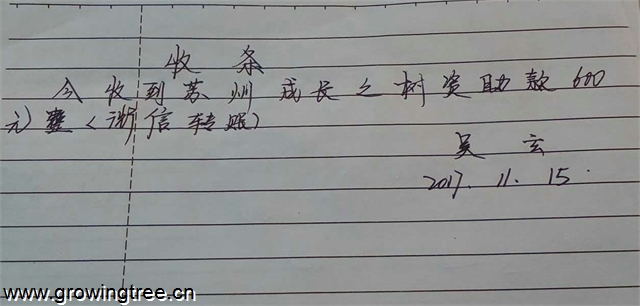 收条
今收到苏州成长之树资助款600
元整(微信转账)
吴玄
2017.11.15.
www.growingtree.cn